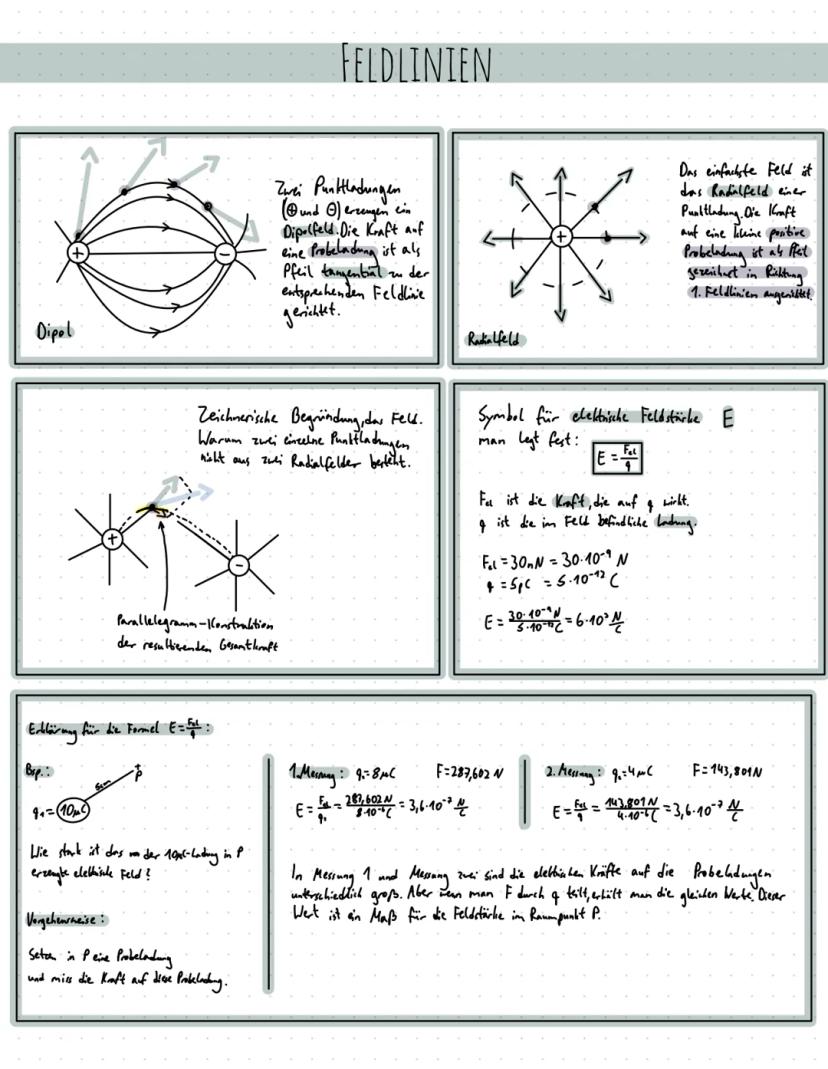 FELDLINIEN
Zwei Punktladungen
(⊕ und ⊖) erzeugen ein
Dipolfeld. Die Kraft auf
eine Probeladung ist als
Pfeil tangential zu der
entsprechenden Feldlinie
gerichtet.
+
−
Dipol
Das einfachste Feld ist
das Radialfeld einer
Punktladung. Die Kraft
auf eine kleine positive
Probeladung ist als Pfeil
gezeichnet in Richtung
1. Feldlinien ausgerichtet.
+
Radialfeld
Zeichnerische Begründung, das Feld.
Warum zwei einzelne Punktladungen
nicht aus zwei Radialfelder besteht.
+
−
Parallelegramm-Konstruktion
der resultierenden Gesamtkraft
Symbol für elektrische Feldstärke E
man legt fest:
E = Fel/q
Fel ist die Kraft, die auf q wirkt.
q ist die im Feld befindliche Ladung.
Fel = 30nN = 30·10⁻⁹ N
q = 5pC = 5·10⁻¹² C
E = 30·10⁻⁹N / 5·10⁻¹²C = 6·10³ N/C
Erklärung für die Formel E = Fel/q :
Bsp.:
6cm
P
q₁= 10µC
Wie stark ist das von der 10µC-Ladung in P
erzeugte elektrische Feld?
Vorgehensweise:
Setze in P eine Probeladung
und miss die Kraft auf diese Probeladung.
1. Messung: q₁=8µC F=287,602 N
E = Fel/q₁ = 287,602 N / 8·10⁻⁶C = 3,6·10⁻⁷ N/C
2. Messung: q₂=4µC F=143,801N
E = Fel/q = 143,801 N / 4·10⁻⁶C = 3,6·10⁻⁷ N/C
In Messung 1 und Messung zwei sind die elektrischen Kräfte auf die Probeladungen
unterschiedlich groß. Aber wenn man F durch q teilt, erhält man die gleichen Werte. Dieser
Wert ist ein Maß für die Feldstärke im Raumpunkt P.